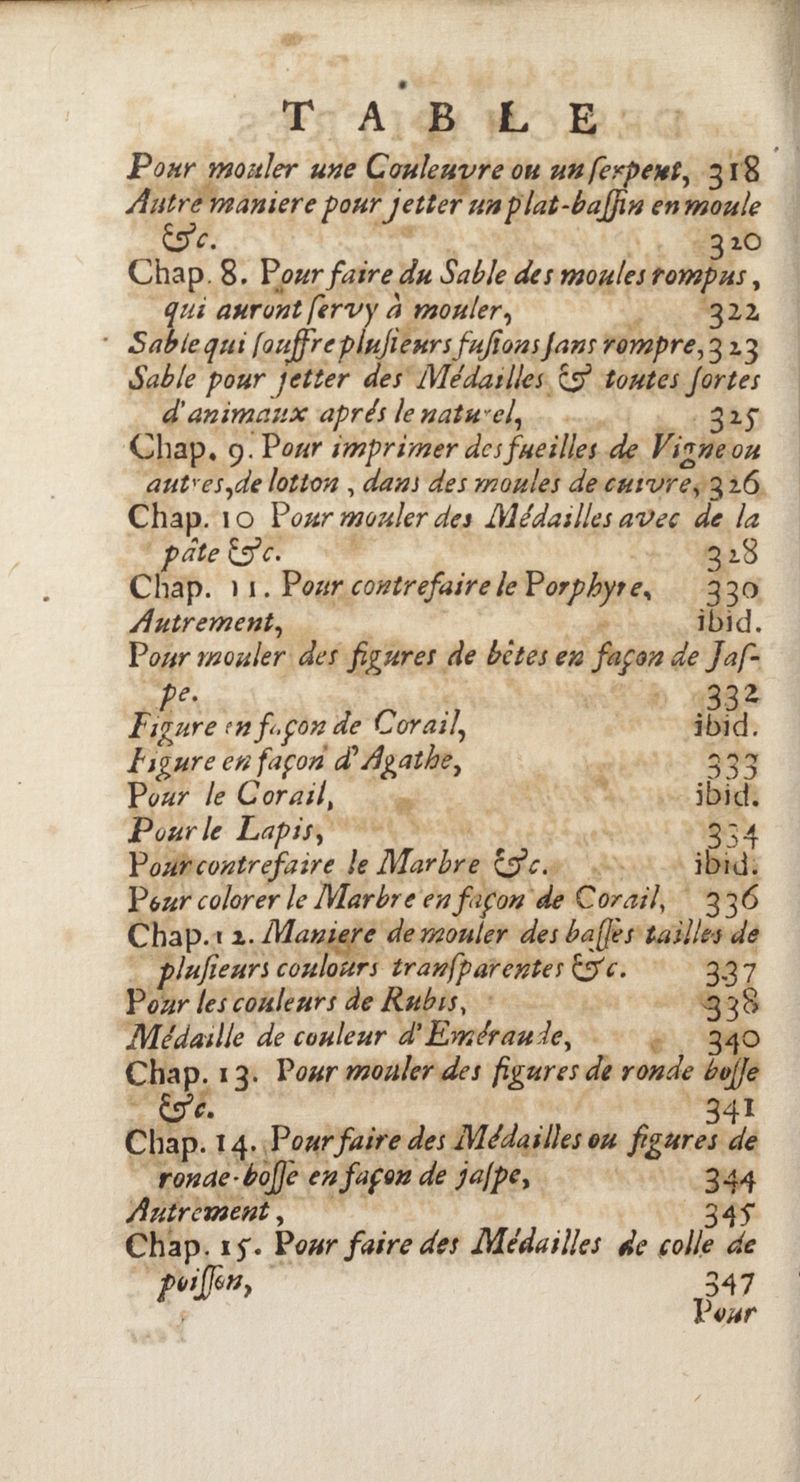 TABLE
Pour mouler une Couleuvre ou un ſerpent, 318
Autre maniere pour jetter un plat-baſſin en moule
&c. 320
Chap. 8. Pour faire du Sable des moules rompus,
qui auront ſervy à mouler, 322
Sable qui ſouffre pluſieurs fuſions ſans rompre, 323
Sable pour jetter des Médailles & toutes ſortes
d'animaux aprés le naturel, 325
Chap. 9. Pour imprimer des fueilles de Vigne ou
autres, de lotton, dans des moules de cuivre, 326
Chap. 10 Pour mouler des Médailles avec de la
pâte &c. 328
Chap. 11. Pour contrefaire le Porphyre, 330
Autrement, ibid.
Pour mouler des figures de bêtes en façon de Jaſ-
pe. 332
Figure en façon de Corail, ibid.
Figure en façon d'Agathe, 333
Pour le Corail, ibid.
Pour le Lapis, 334
Pour contrefaire le Marbre &c. ibid.
Pour colorer le Marbre en façon de Corail, 336
Chap. 12. Maniere de mouler des baſſes tailles de
pluſieurs coulours tranſparentes &c. 337
Pour les couleurs de Rubis, 338
Médaille de couleur d'Eméraude, 340
Chap. 13. Pour mouler des figures de ronde boſſe
&c. 341
Chap. 14. Pour faire des Médailles ou figures de
ronde-boſſe en façon de jaſpe, 344
Autrement, 345
Chap. 15. Pour faire des Médailles de colle de
poiſſon, 347
Pour